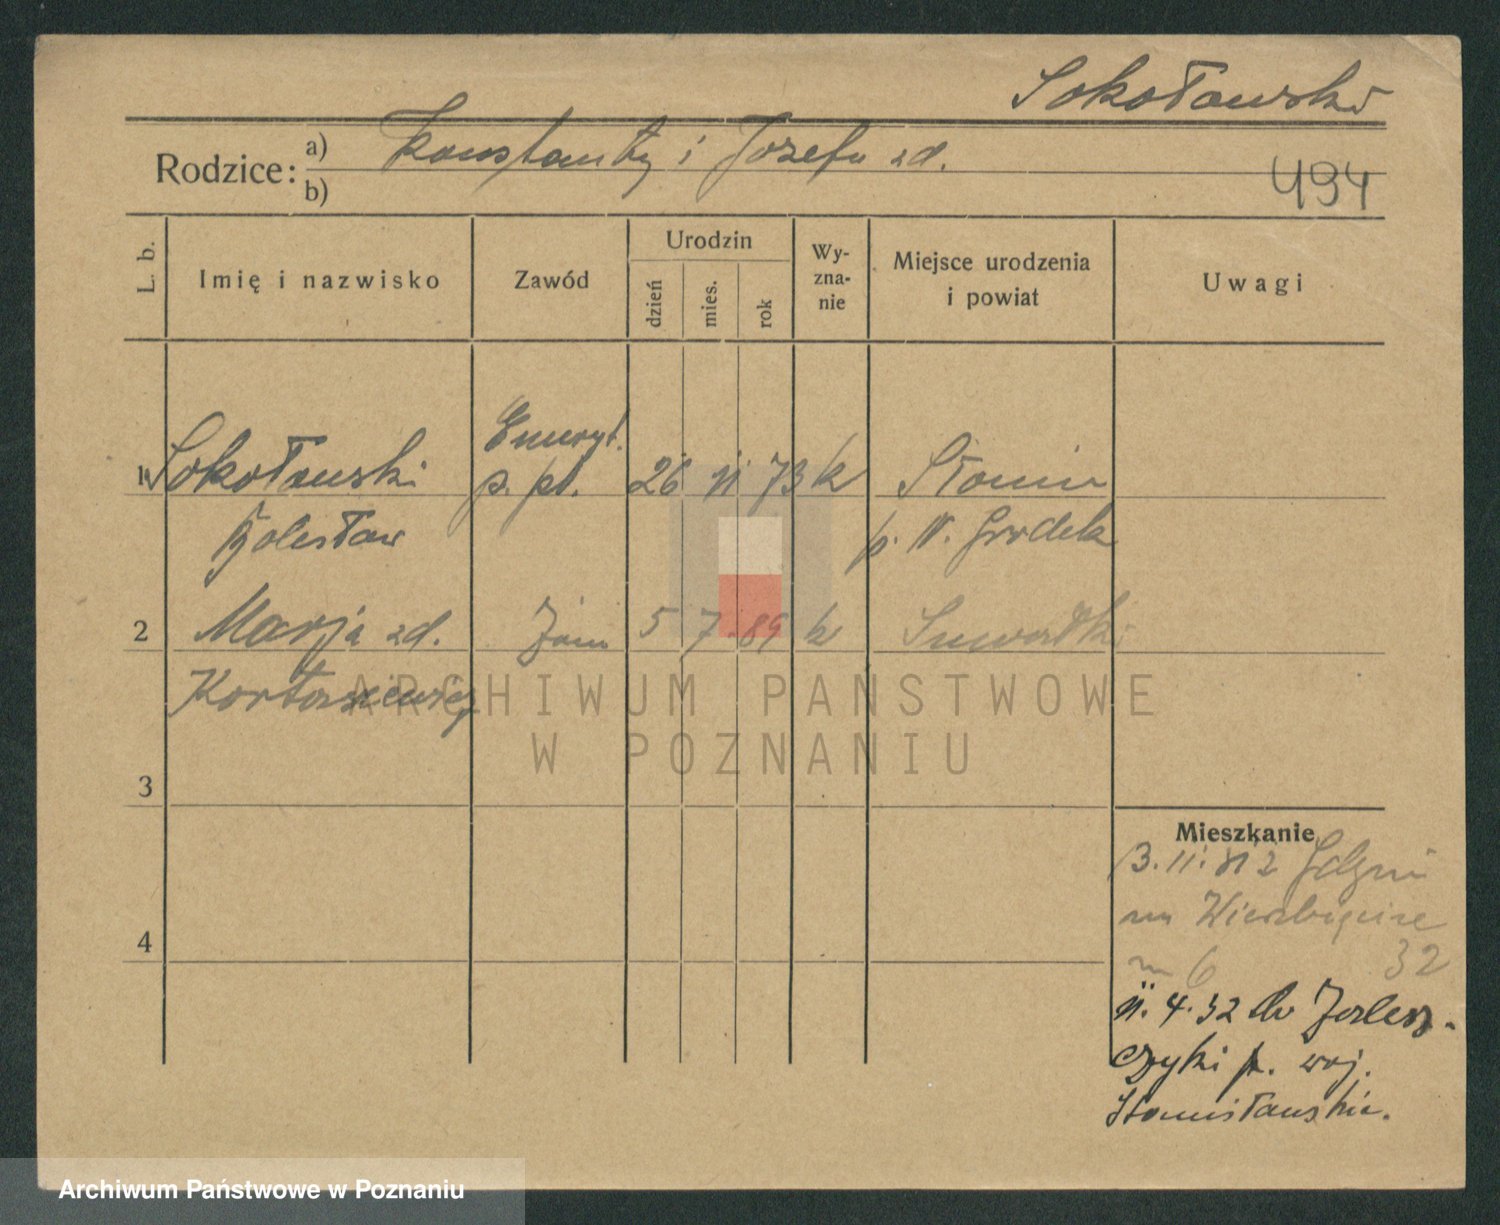 Sokołowski
Rodzice: a) Konstanty i Józefa zd.
b)
494
L. b.
Imię i nazwisko
Zawód
Urodzin
dzień
mies.
rok
Wy-
zna-
nie
Miejsce urodzenia
i powiat
Uwagi
Emeryt.
1 Sokołowski p. pł. 26 11 73 k Słonim
Bolesław p. N. Grodek
2 Marja zd. Żona 5 7. 89 k Suwałki
Kortasiewicz
3
4
Mieszkanie
3. 11. Gdyni
m 6 32
11. 4. 32 do Zalesz-
czyki p. woj.
Stanisławskie.
ARCHIWUM PAŃSTWOWE
W POZNANIU
Archiwum Państwowe w Poznaniu